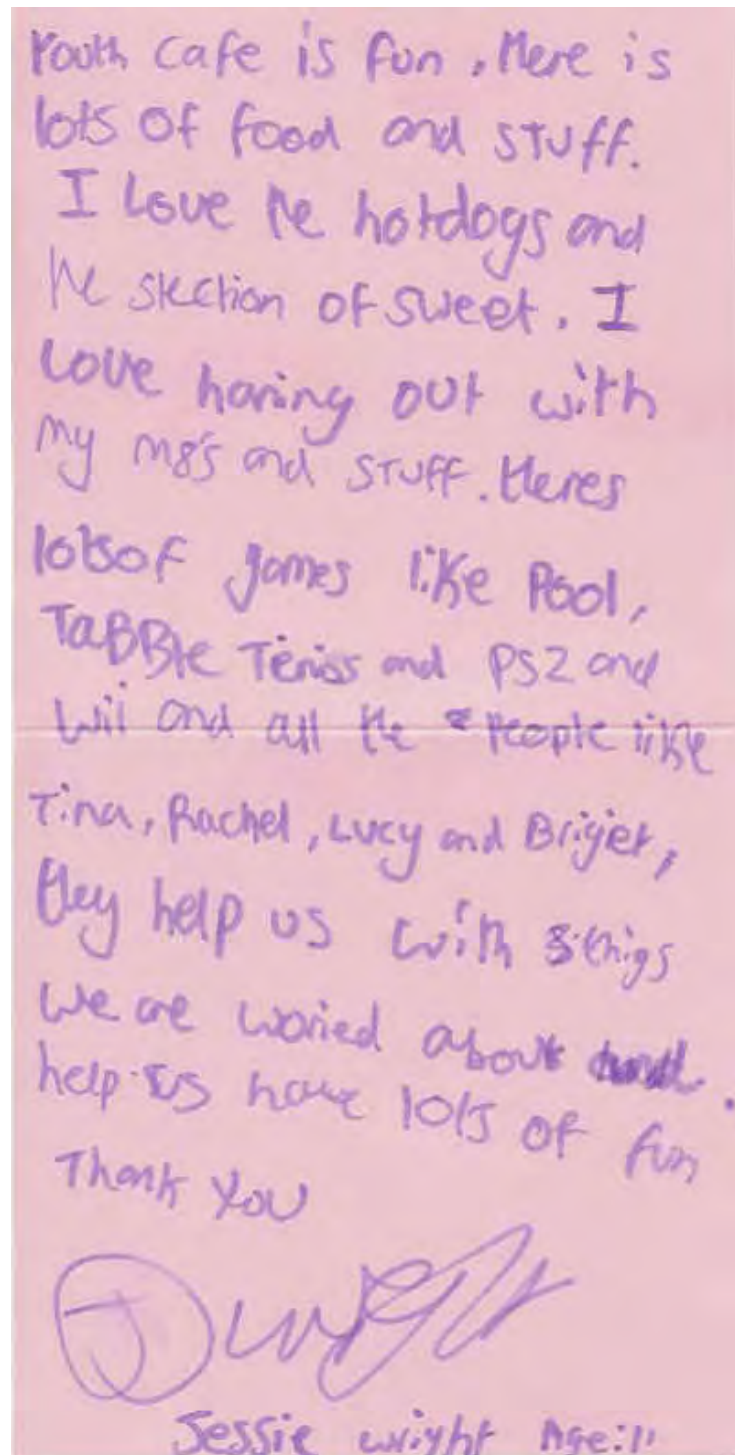 Youth cafe is fun, there is
lots of food and stuff.
I Love the hotdogs and
the slection of sweet. I
Love haning out with
my m8's and stuff. theres
lotsof games like Pool,
TaBBle Teniss and PS2 and
Wii and all the People like
Tina, Rachel, Lucy and Brigiet,
they help us with thigs
We are woried about and
help us have lots of fun.
Thank You
J Wright
Jessie Wright Age:11